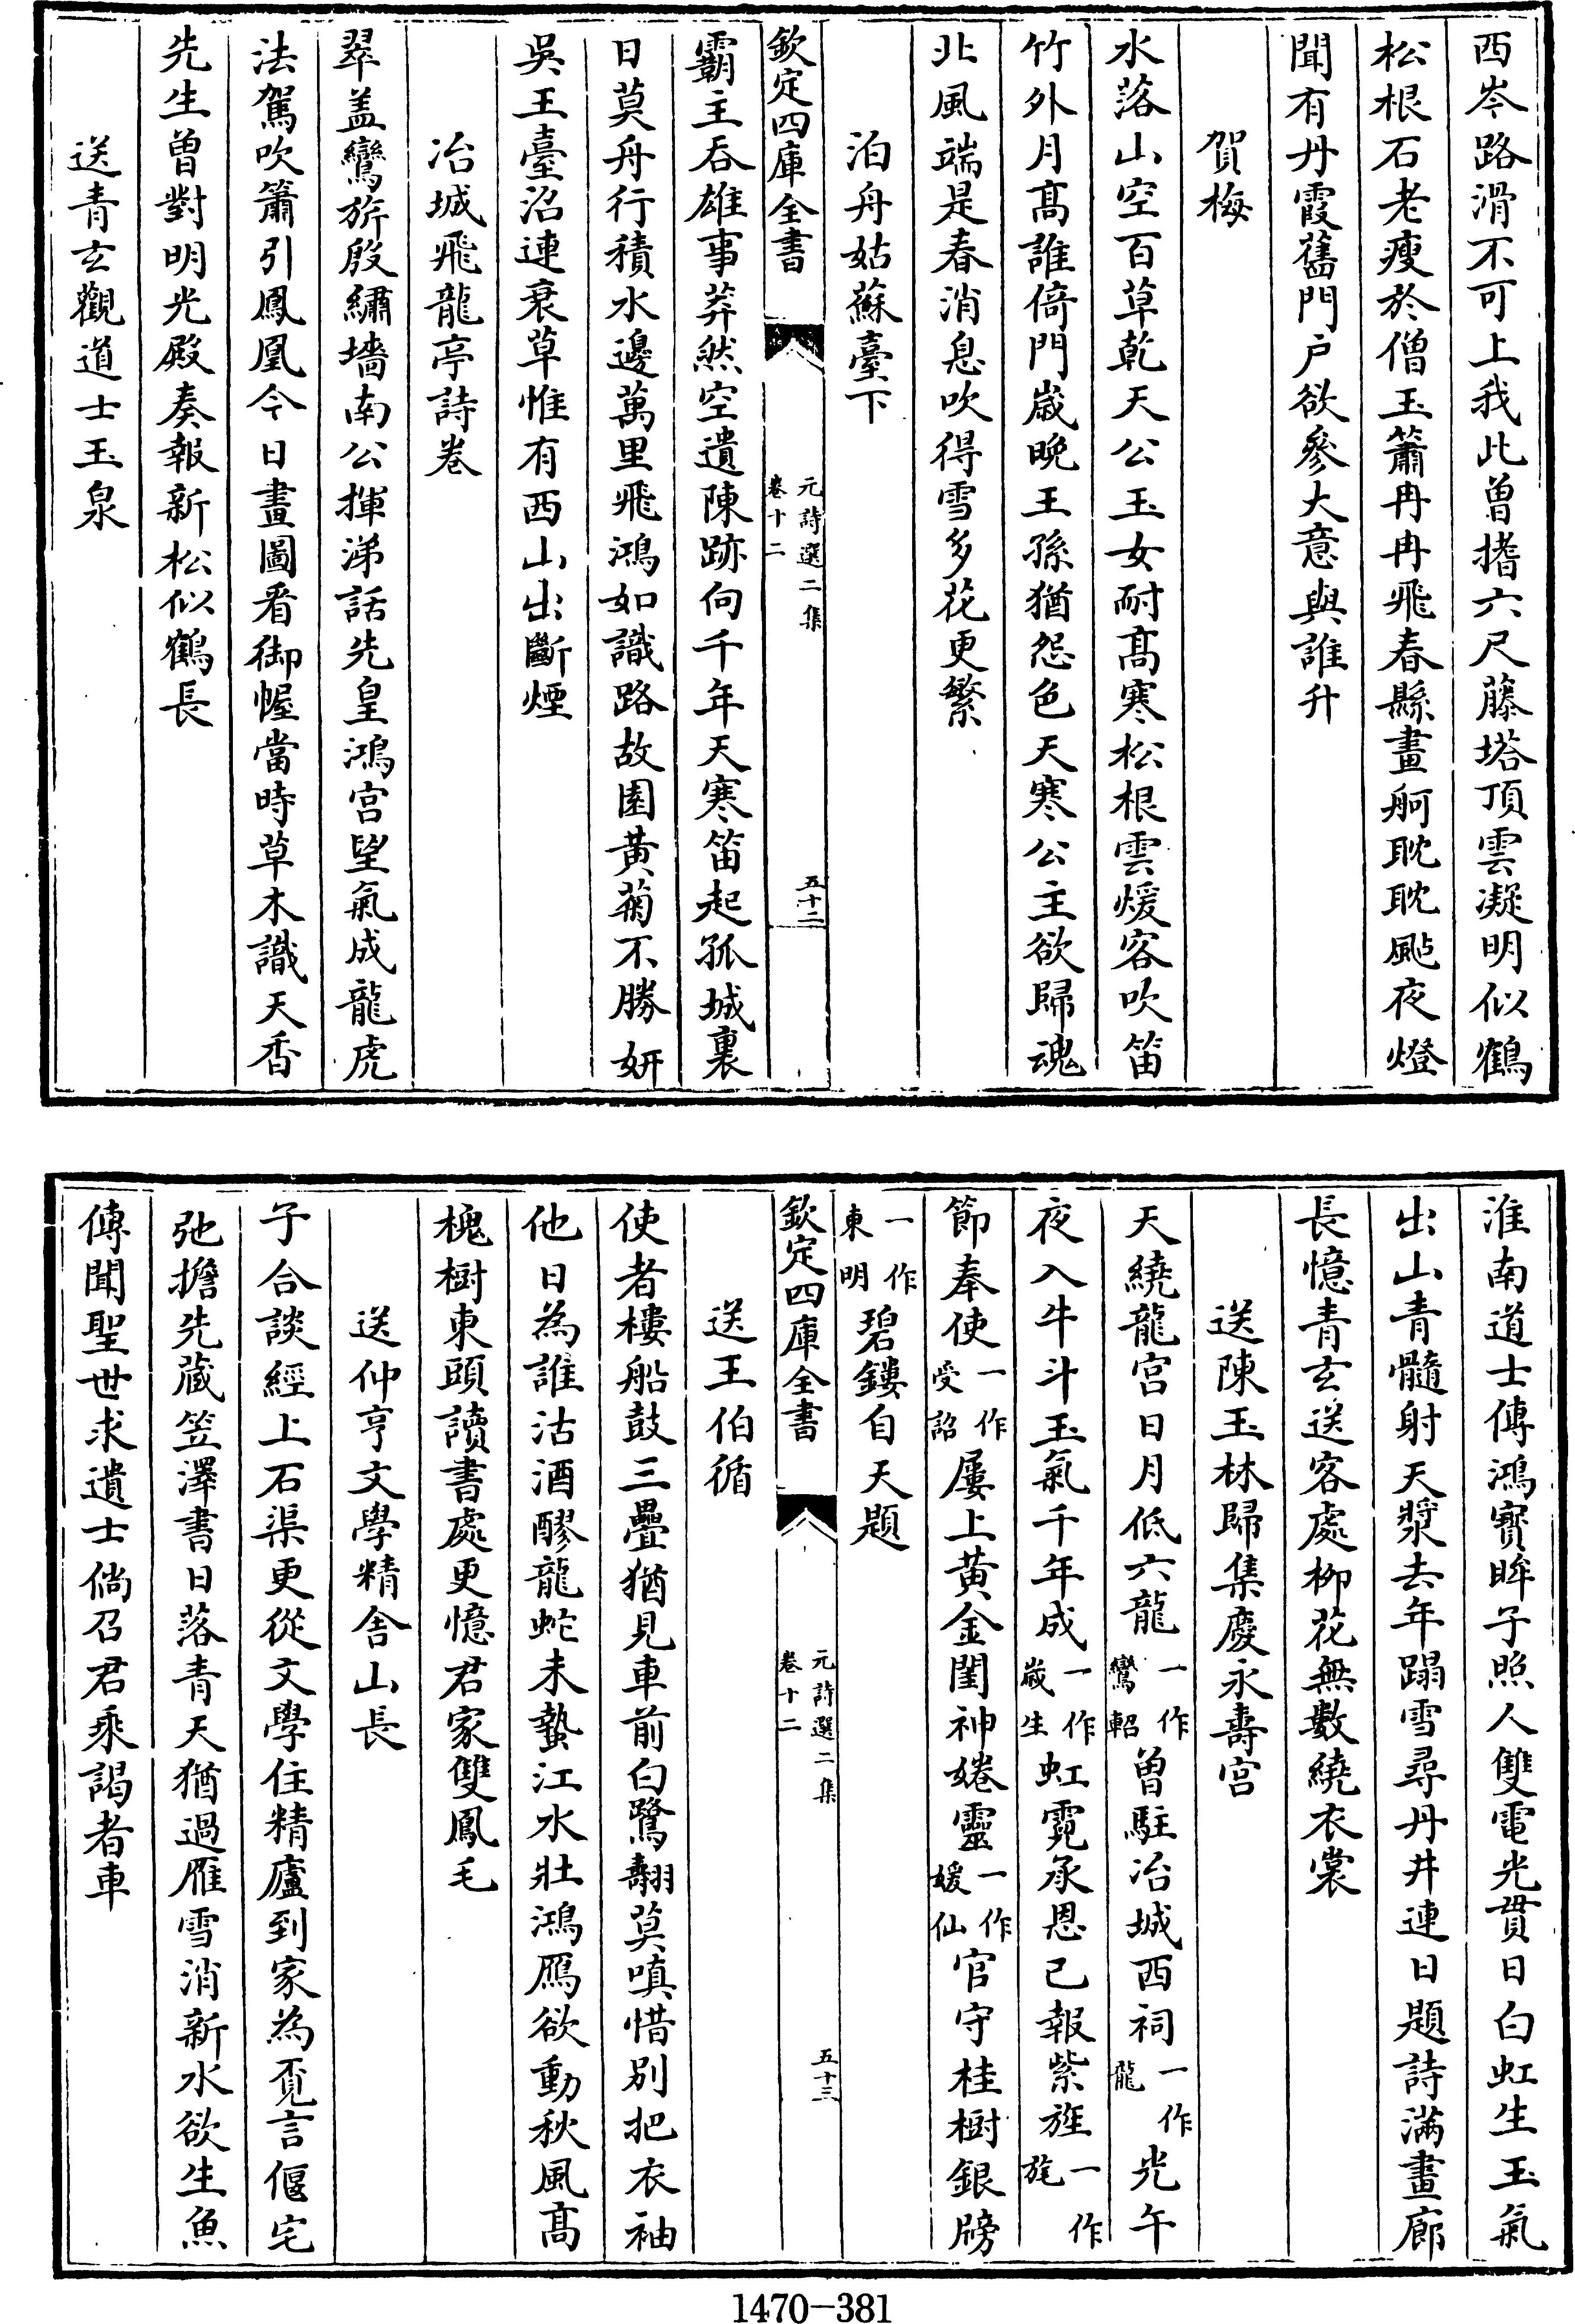 西岑路滑不可上我此曾搘六尺藤塔頂雲凝明似鶴
松根石老瘦於僧玉簫冉冉飛春縣畫舸耽耽颭夜燈
聞有丹霞舊門戶欲參大意與誰升
賀梅
水落山空百草乾天公玉女耐髙寒松根雲煖客吹笛
竹外月髙誰倚門嵗晚王孫猶怨色天寒公主欲歸魂
北風端是春消息吹得雪多花更繁
泊舟姑蘇臺下
欽定四庫全書
元詩選二集
卷十二
五十二
霸主吞雄事莽然空遺陳跡向千年天寒笛起孤城裏
日莫舟行積水邊萬里飛鴻如識路故園黄菊不勝妍
吳王臺沼連衰草惟有西山出斷煙
冶城飛龍亭詩卷
翠盖鸞旂殷繡墻南公揮涕話先皇鴻宫望氣成龍虎
法駕吹簫引鳳凰今日畫圖看御幄當時草木識天香
先生曽對明光殿奏報新松似鶴長
送青玄觀道士玉泉
淮南道士傳鴻寳眸子照人雙電光貫日白虹生玉氣
出山青髓射天漿去年蹋雪尋丹井連日題詩滿畫廊
長憶青玄送客處柳花無數繞衣裳
送陳玉林歸集慶永壽宫
天繞龍宫日月低六龍一作鸞軺曽駐冶城西祠一作龍光午
夜入牛斗玉氣千年成一作嵗生虹霓承恩已報紫旌一作旄
節奉使一作受詔屢上黄金閨神婘靈一作媛仙官守桂樹銀牓
一作東明碧鏤自天題
欽定四庫全書
元詩選二集
卷十二
五十三
送王伯循
使者樓船鼓三疊猶見車前白鷺翿莫嗔惜別把衣袖
他日為誰沽酒醪龍蛇未蟄江水壯鴻鴈欲動秋風髙
槐樹東頭讀書處更憶君家雙鳳毛
送仲亨文學精舍山長
子合談經上石渠更從文學住精廬到家為覔言偃宅
弛擔先蔵笠澤書日落青天猶過雁雪消新水欲生魚
傳聞聖世求遺士倘召君乘謁者車
1470-381